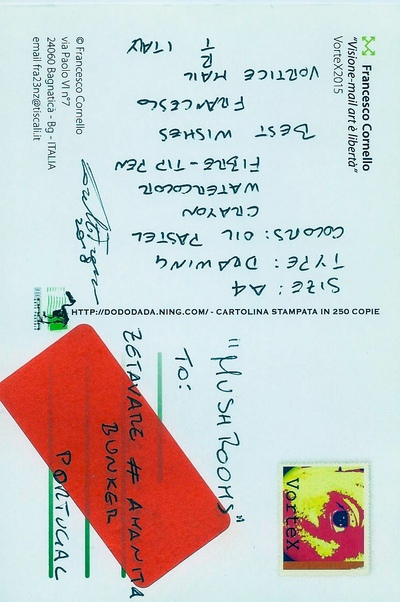 Francesco Cornello
"Visione-mail art è libertà"
VorteX2015
SIZE: A4
TYPE: DRAWING
COLORS: OIL PASTEL
CRAYON
WATERCOLOR
FIBRE-TIP PEN
BEST WISHES
FRANCESCO
VORTICE MAIL
R
T ITALY
© Francesco Cornello
via Paolo VI n°7
24060 Bagnatica - Bg - ITALIA
email fra23nz@tiscali.it
HTTP://DODODADA.NING.COM/ - CARTOLINA STAMPATA IN 250 COPIE
"MUSHROOMS"
TO:
ZETAVARE # AMANITA
BUNKER
PORTUGAL
VorteX